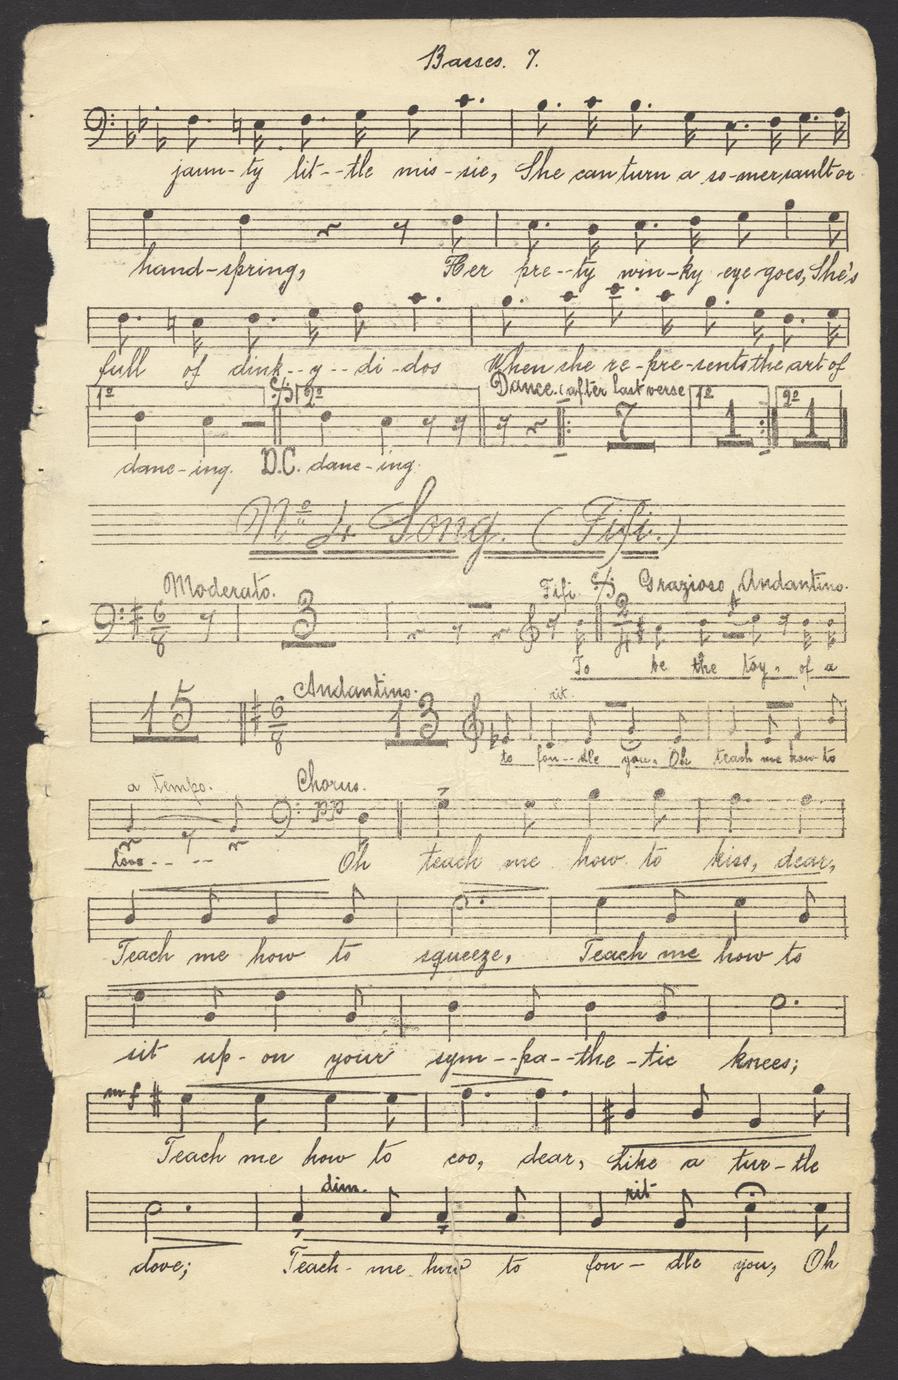 Basses. 7.
jaun-ty lit--tle mis-sie, She can turn a so-mersault or
hand-spring, Her pre--ty win-ky eye goes, She's
full of dink--y--di-dos When she re-pre-sents the art of
1º 2º Dance. (after last verse 1º 2º
7 1 1
danc-ing. D.C. danc-ing.
Nº 4 Song. (Fifi.)
Moderato. Fifi Grazioso Andantino.
6/8 3 2/4
To be the toy, of a
Andantino. rit.
15 6/8 13
to fon--dle you. Oh teach me how to
a tempo. Chorus.
pp
love-- -- Oh teach me how to kiss, dear,
Teach me how to squeeze, Teach me how to
sit up-on your sym--pa--the-tic knees;
mf
Teach me how to coo, dear, Like a tur-tle
dim. rit
dove; Teach- me how to fon- dle you, Oh